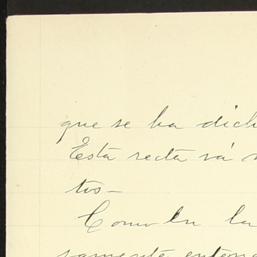 que se ha dich
Esta recta vá
tos—
Como en la
samente enten